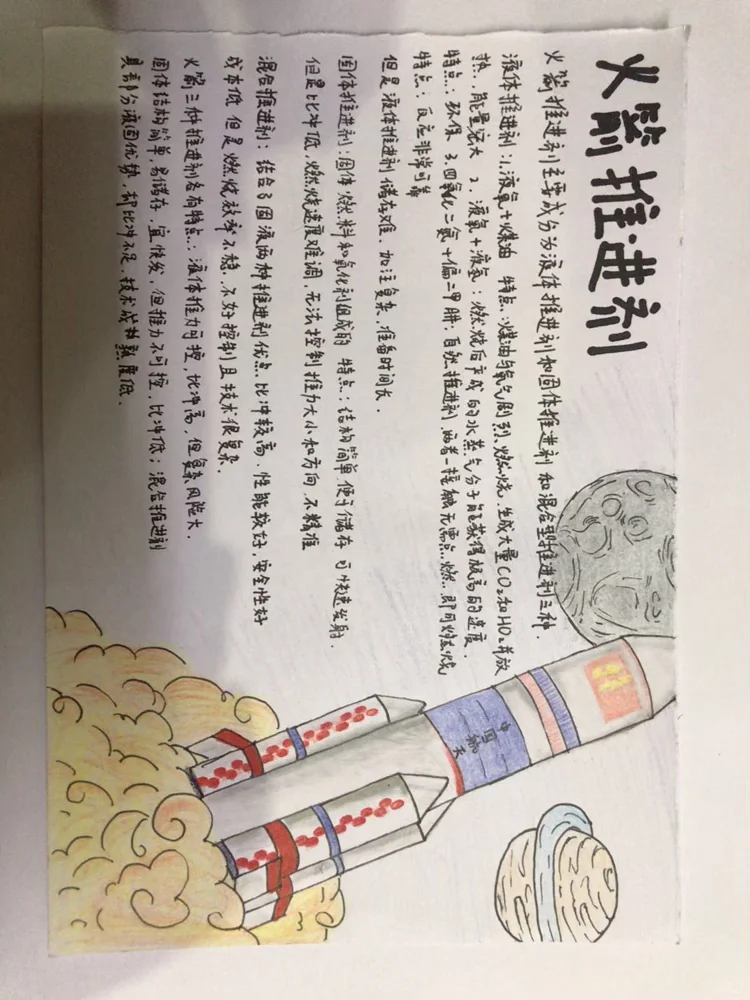 火箭推进剂
火箭推进剂主要成分为液体推进剂和固体推进剂和混合型推进剂三种.
液体推进剂：1.液氧+煤油 特点：煤油与氧气剧烈燃烧.生成大量CO₂和HO₂并放
热.能量宽大 2.液氧+液氢：燃烧后产成的水蒸气分子能获得极高的速度.
特点：环保 3.四氧化二氮+偏二甲肼：自燃推进剂.两者一接触无需点燃.即可燃烧
特点：反应非常可靠
但是液体推进剂储存难.加注复杂.准备时间长.
固体推进剂：固体燃料和氧化剂组成的 特点：结构简单便于储存 可快速发射.
但是比冲低.燃烧速度难调.无法控制推力大小和方向.不精准
混合推进剂：结合了固液两种推进剂优点.比冲较高.性能较好.安全性好
成本低 但是燃烧效率不稳.不好控制且技术很复杂.
火箭三种推进剂各有特点：液体推力可控，比冲高，但复杂风险大.
固体结构简单，易储存，宜快发，但推力不可控，比冲低；混合推进剂
具部分液固优势，却比冲不足，技术成熟度低.
中国航天